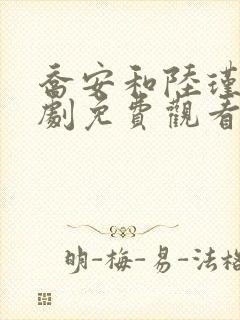 喬安和陸瑾
劇免費觀看
明-梅-易-法格